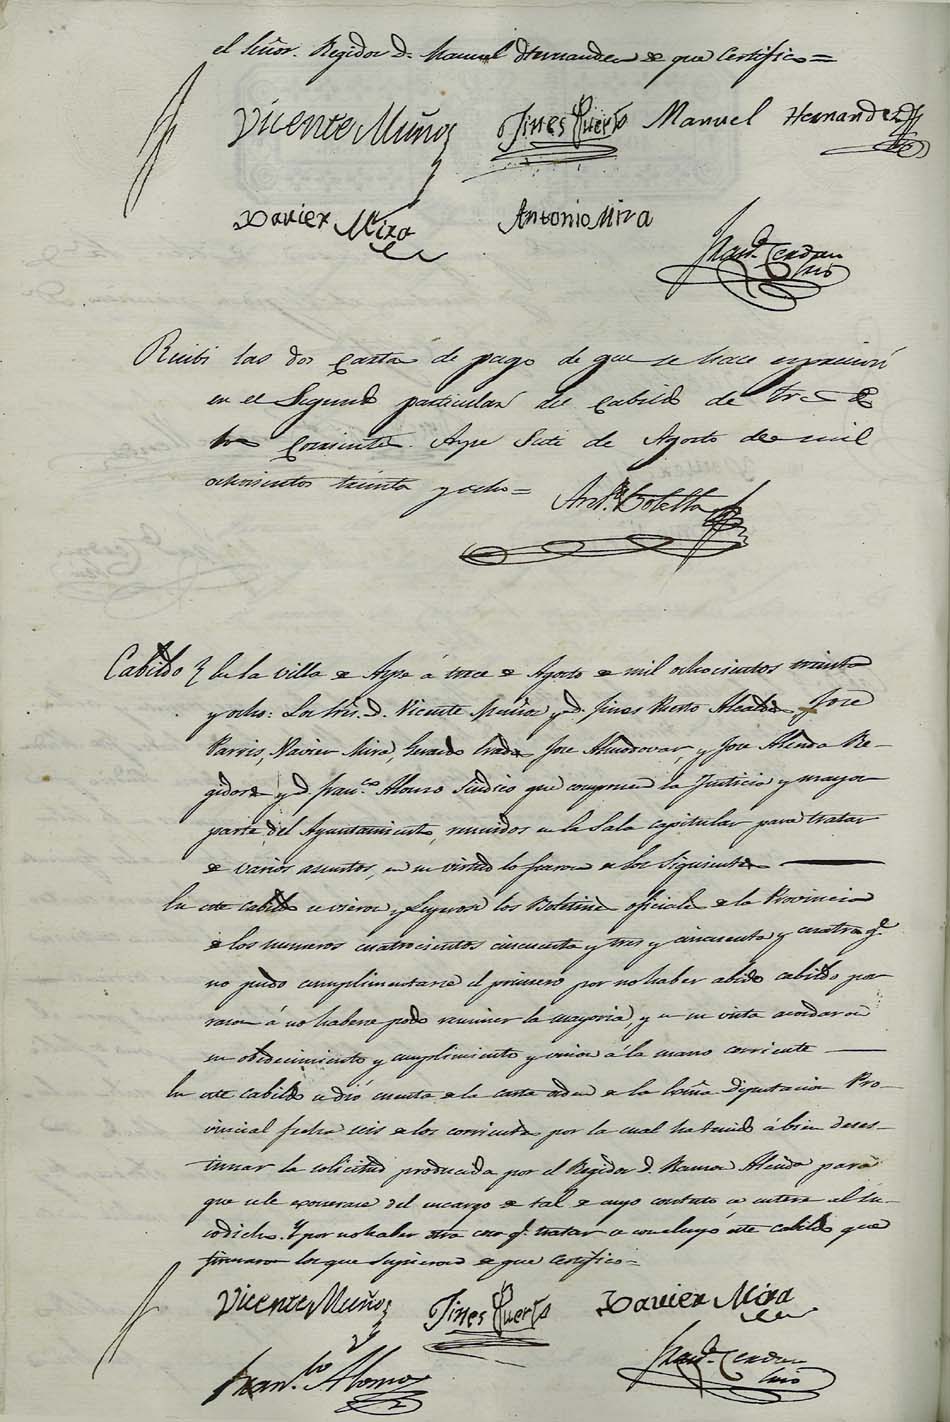 el Señor Regidor D. Manuel Hernandez de que Certifico =
Vicente Muñoz Jines Puerto Manuel Hernandez
Xavier Mira Antonio Mira
Fran.co Cerdan
Srio
Recibi las dos Cartas de pago de que se hace espresion
en el Segundo particular del Cabildo de tres de
los Corrientes. Aspe Siete de Agosto de mil
ochocientos treinta y ocho = Ant.o Botella
Cabildo } En la villa de Aspe á trece de Agosto de mil ochocientos treinta
y ocho: Los Sres. D. Vicente Muñoz y D. Jines Puerto Alcaldes, Jose
Pavis, Xavier Mira, Gerardo Jose Almodovar, y Jose Alenda Re-
gidores y D. Fran.co Alonso Sindico que componen la Justicia y mayor
parte del Ayuntamiento, reunidos en la Sala capitular para tratar
de varios asuntos, en su virtud lo fueron de los Siguientes
En este cabildo se vieron y Leyeron los Boletines oficiales de la Provincia
de los numeros cuatrocientos cincuenta y tres y cincuenta y cuatro q.e
no pudo cumplimentarse el primero por no haber abido cabildo por
razon á no haberse podo reunirse la mayoria, y en su vista acordaron
su obedecimiento y cumplimiento y union á la mano corriente
En este cabildo se dió cuenta de la carta orden de la Exma Diputacion Pro-
vincial fecha seis de los corrientes por la cual ha tenido á bien deses-
timar la solicitud producida por el Regidor D. Ramon Alenda para
que se le exonerase del encargo de tal de cuyo contesto se entere el Su-
sodicho. Y por no haber otra cosa q.e tratar se concluyó este cabildo que
firmaron los que Supieron de que Certifico =
Vicente Muñoz Jines Puerto Xavier Mira
Fran.co Alonso Fran.co Cerdan
Srio